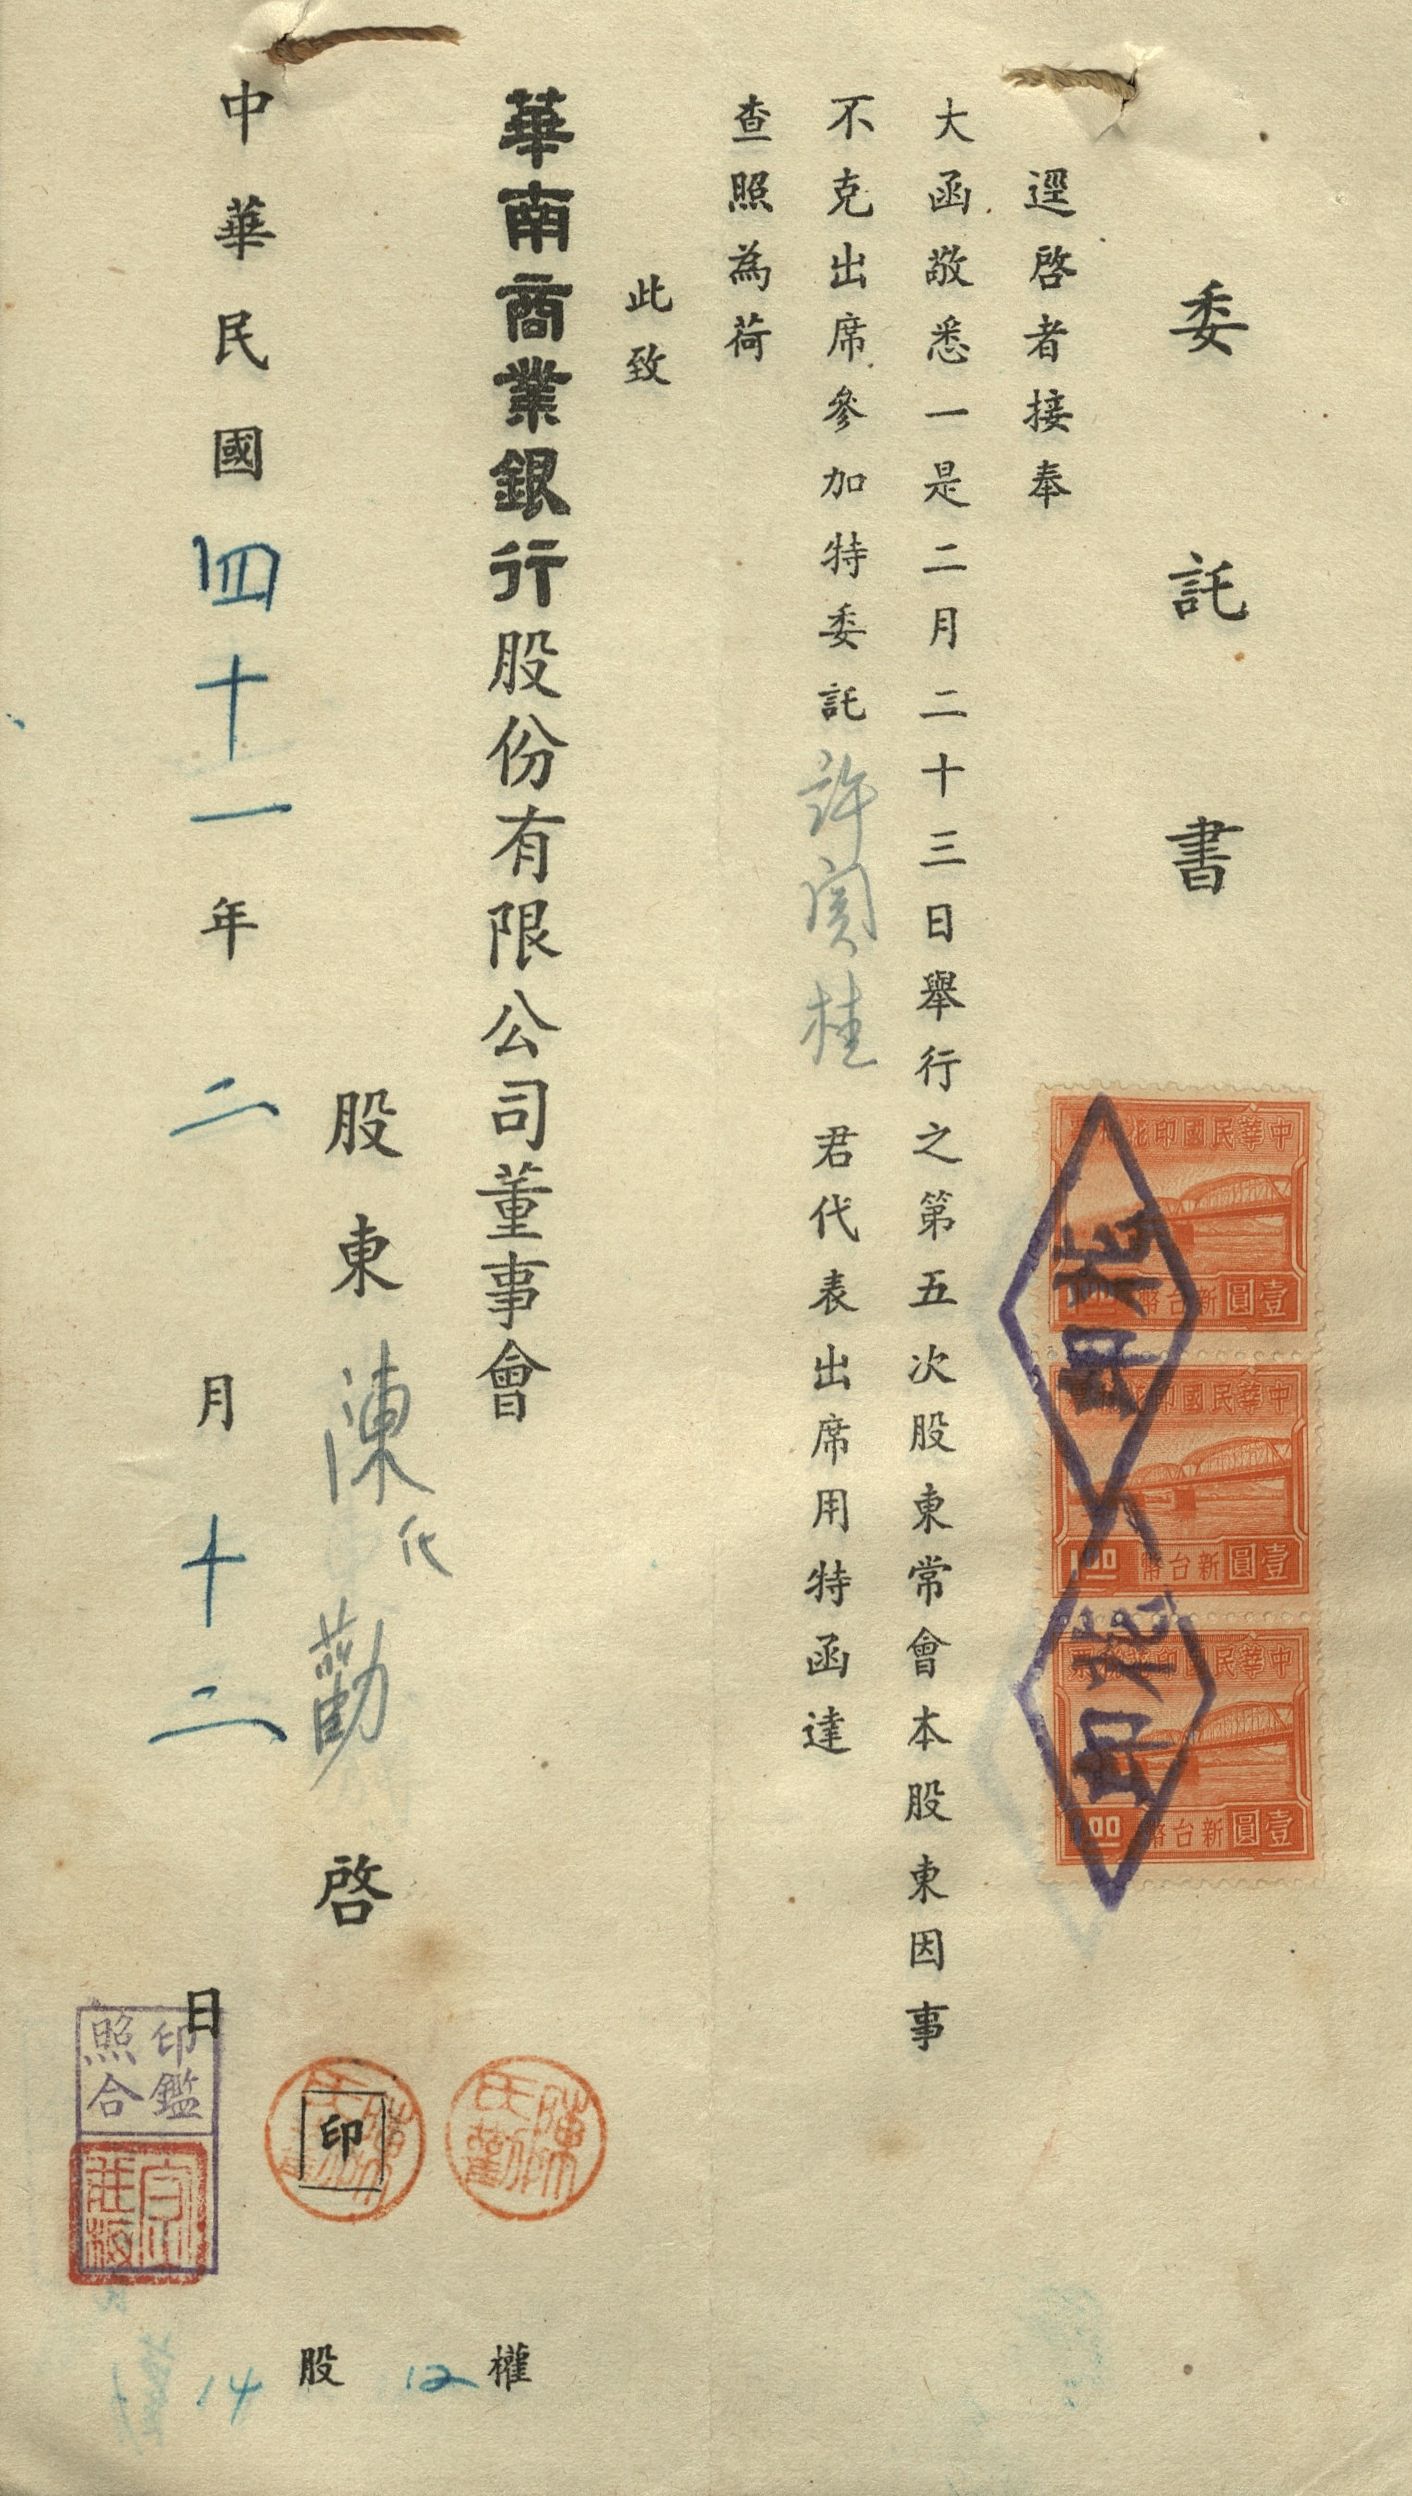 委託書
逕啓者接奉
大函敬悉一是二月二十三日舉行之第五次股東常會本股東因事
不克出席參加特委託許闵桂君代表出席用特函達
查照為荷
此致
華南商業銀行股份有限公司董事會
股東陳氏勸啓
中華民國四十一年二月十二日
中華民國印花稅票
壹圓新台幣1.00
中華民國印花稅票
壹圓新台幣1.00
中華民國印花稅票
壹圓新台幣1.00
印花
印花
陳氏勸
陳氏勸
印
印鑑照合
12權
14股